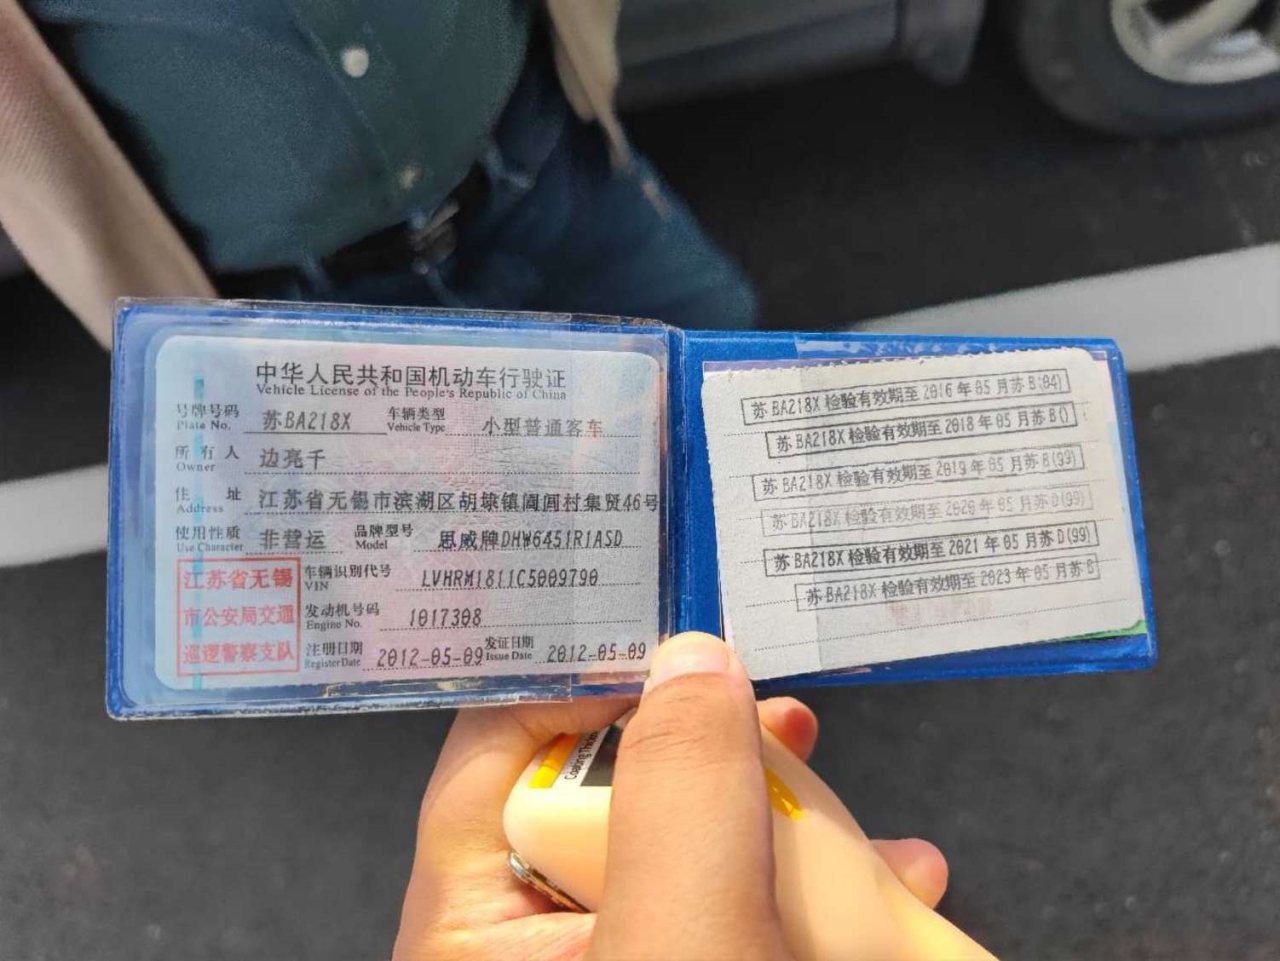 中华人民共和国机动车行驶证
Vehicle License of the People's Republic of China
号牌号码 苏BA218X 车辆类型 小型普通客车
Plate No. Vehicle Type
所有人 边亮千
Owner
住址 江苏省无锡市滨湖区胡埭镇阖闾村集贤46号
Address
使用性质 非营运 品牌型号 思威牌DHW6451R1ASD
Use Character Model
江苏省无锡
市公安局交通
巡逻警察支队
车辆识别代号 LVHRM1811C5009790
VIN
发动机号码 1017308
Engine No.
注册日期 2012-05-09 发证日期 2012-05-09
Register Date Issue Date
苏BA218X 检验有效期至 2016 年 05 月苏 B(04)
苏BA218X 检验有效期至 2018 年 05 月苏 B()
苏BA218X 检验有效期至 2019 年 05 月苏 B(99)
苏BA218X 检验有效期至 2020 年 05 月苏 D(99)
苏BA218X 检验有效期至 2021 年 05 月苏 D(99)
苏BA218X 检验有效期至 2023 年 05 月苏 B
Coating